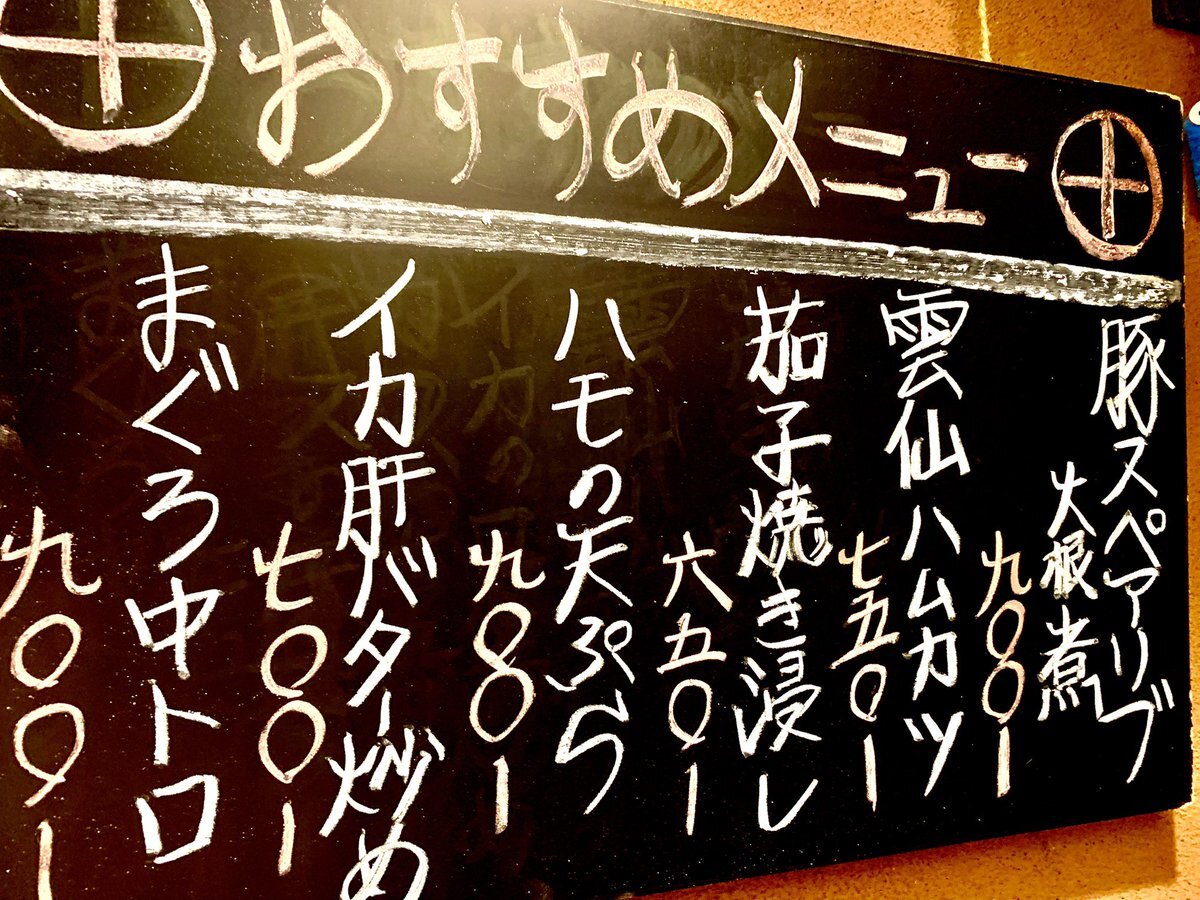 おすすめメニュー
豚スペアリブ
大根煮
九〇〇ー
雲仙ハムカツ
七五〇ー
茄子焼き浸し
六五〇ー
ハモの天ぷら
九〇〇ー
イカ肝バター炒め
七〇〇ー
まぐろ中トロ
九〇〇ー